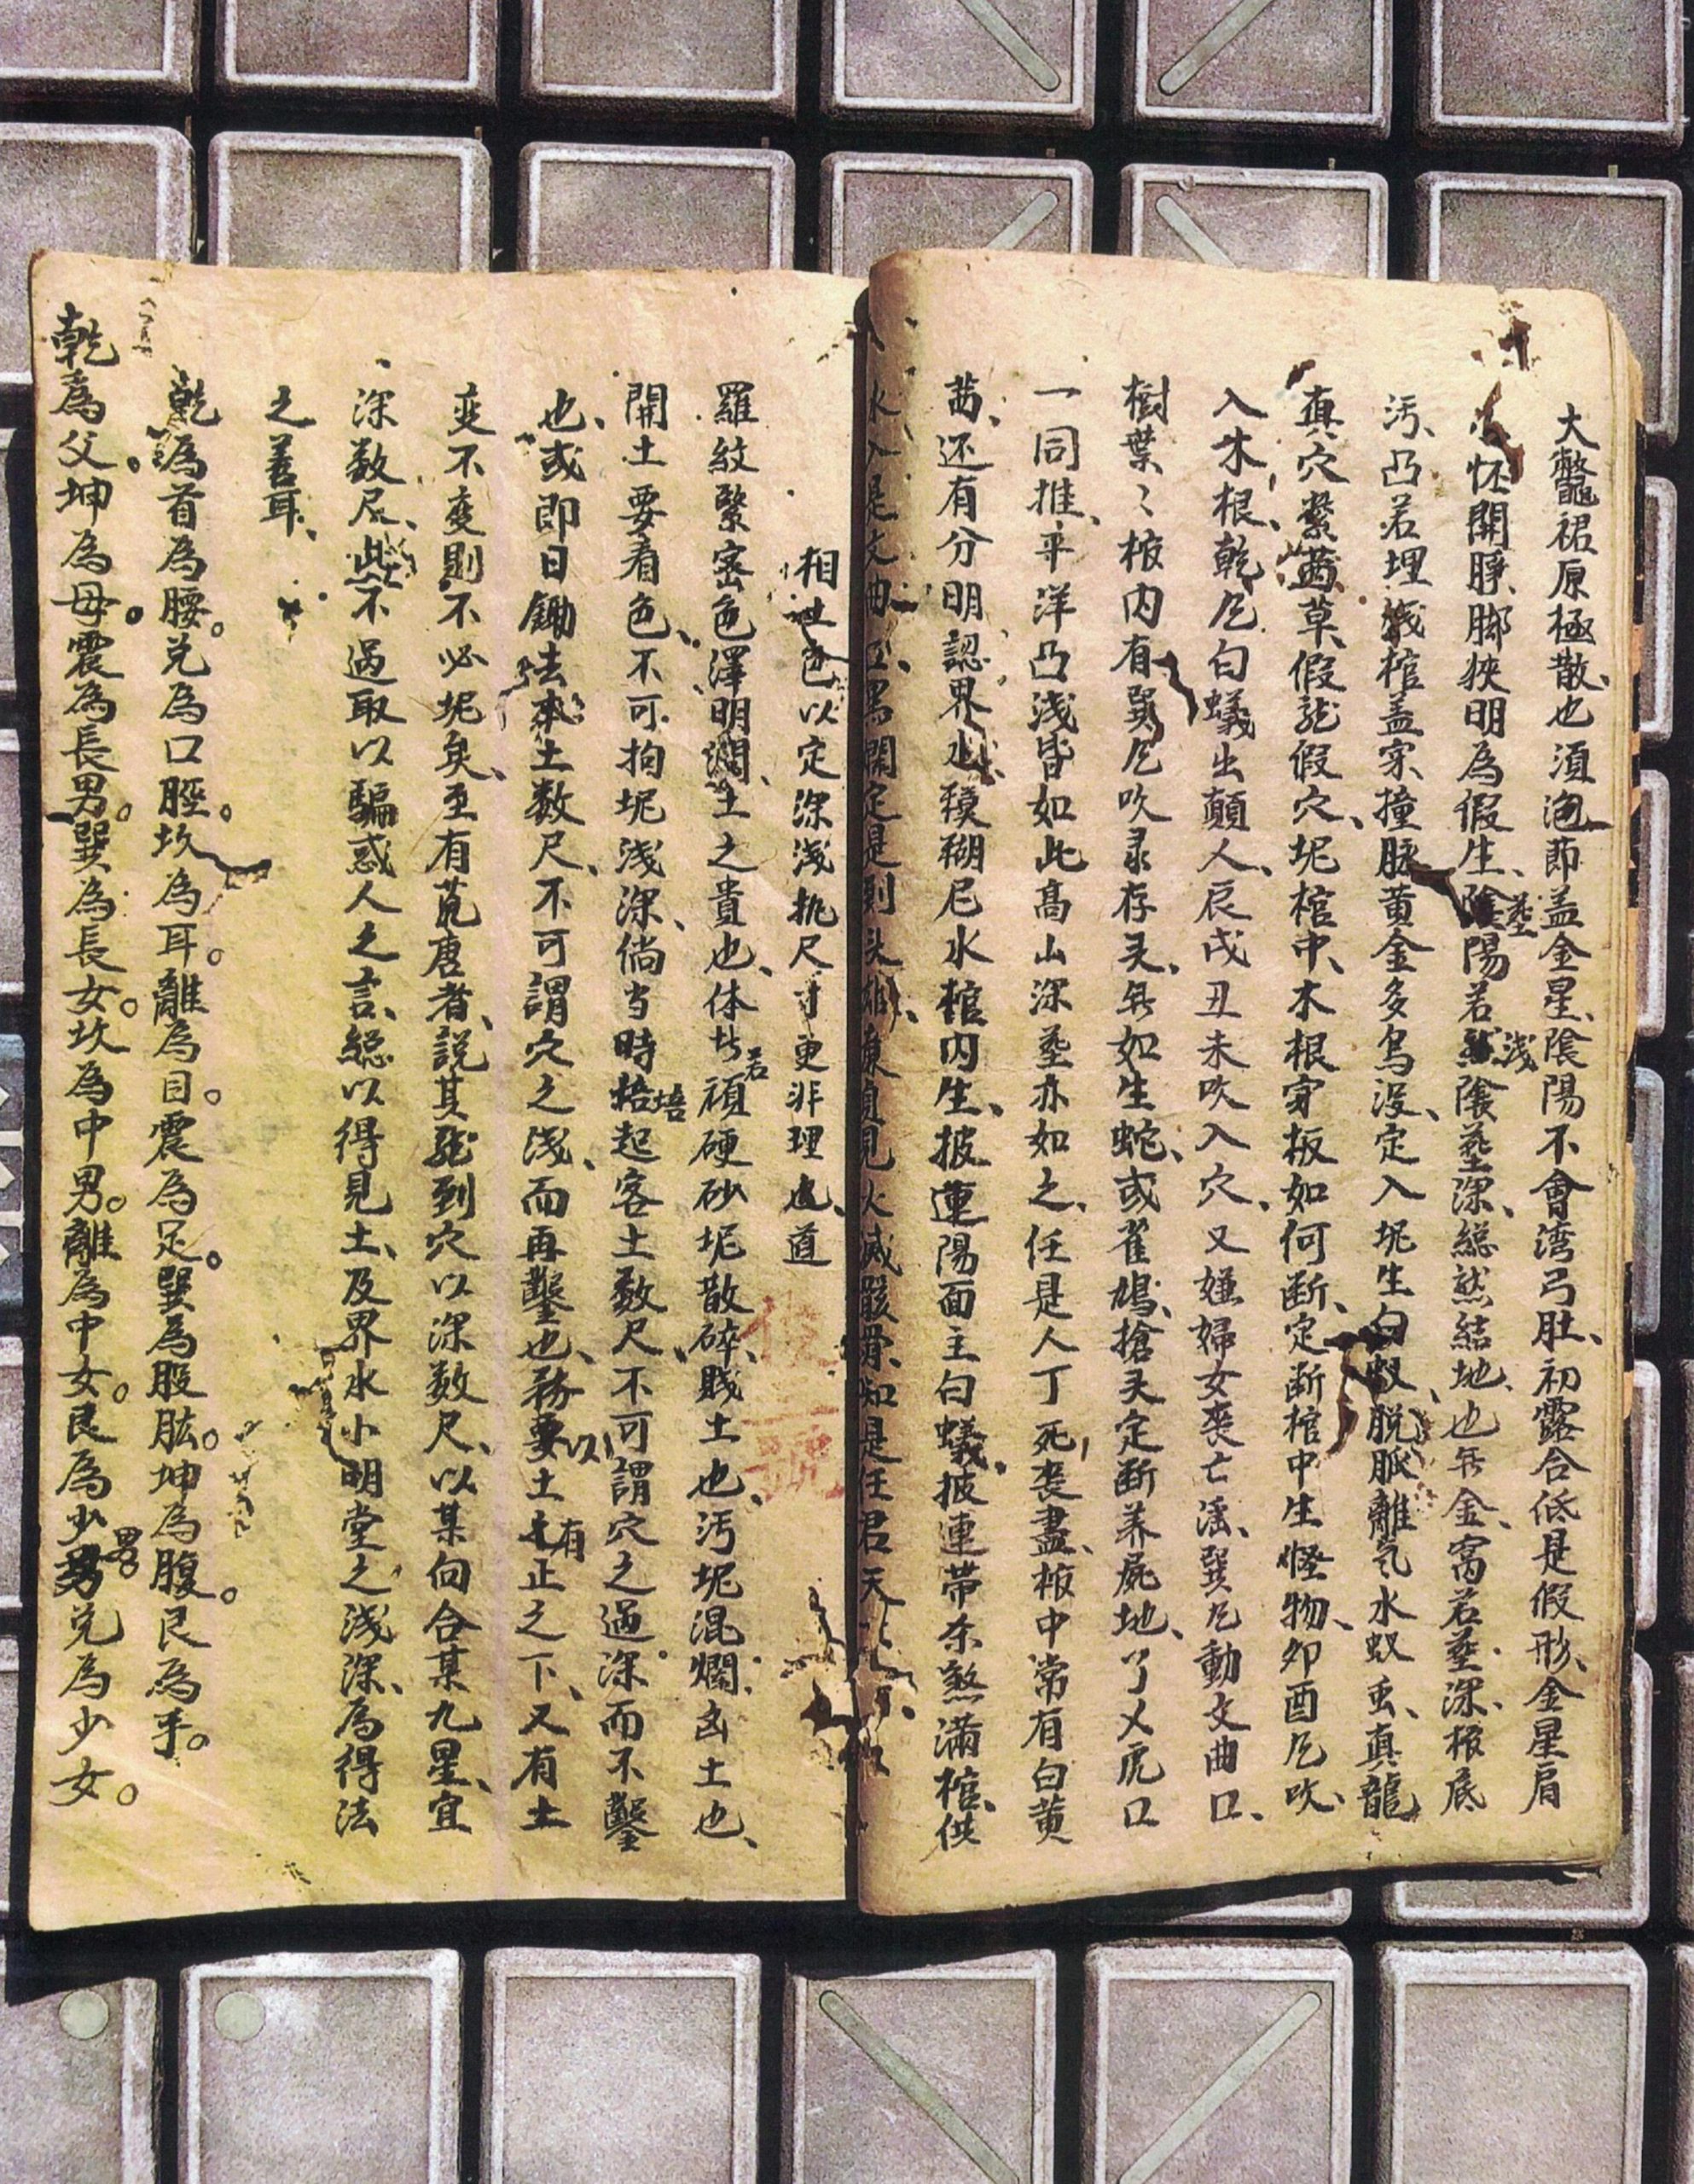 大鼈裙原極散、也須泡節盖金星、陰陽不會湾弓肚、初露合低是假形、金星肩
怀開胮脚狹明為假生、陰陽若浅陰塟深、総然結地也無金、窩若塟深棺底
汚、凸若埋浅棺盖穿、撞脉黄金多烏没、定入坭生白蟻、脱脈離氣水蚁虫、真龍
真穴繁茜草、假龍假穴、坭棺中、木根穿板如何断、定断棺中生怪物、卯酉凢吹、
入木根、乾凢白蟻出顛人、辰戌丑未吹入穴、又嫌婦女丧亡滛、巽凢動文曲口、
樹葉〻棺内有巽凢吹录存灵、無如生蛇、或雀鳩、搶灵定断养屍地、了乂虎口
一同推、平洋凸浅皆如此高山深塟亦如之、任是人丁死丧盡、棺中常有白黄
茜、还有分明認界水糢糊尼水棺内生、披蓮陽面主白蟻、披連帯杀煞滿棺、供
水入是文曲
相土色以定深浅挑尺寸更非理也、道
羅紋緊密色澤明潤、土之貴也、体若頑硬砂坭散碎、賤土也、汚坭混爛、凶土也、
開土要看色、不可拘坭浅深、倘当時培起客土数尺、不可謂穴之過深而不鑿
也、或即日鋤去本土数尺、不可謂穴之浅、而再鑿也、務要以土有正之下、又有土
变不变則不必坭矣、至有荒唐者、說其龍到穴以深数尺、以某向合某九星、宜
深数尺、此不過取以騙惑人之言、総以得見土、及界水小明堂之浅深、為得法
之善耳、
乾為首為腰。兑為口脛。坎為耳。離為目。震為足。巽為股肱。坤為腹。艮為手。
乾為父。坤為母。震為長男。巽為長女。坎為中男。離為中女。艮為少男。兑為少女。